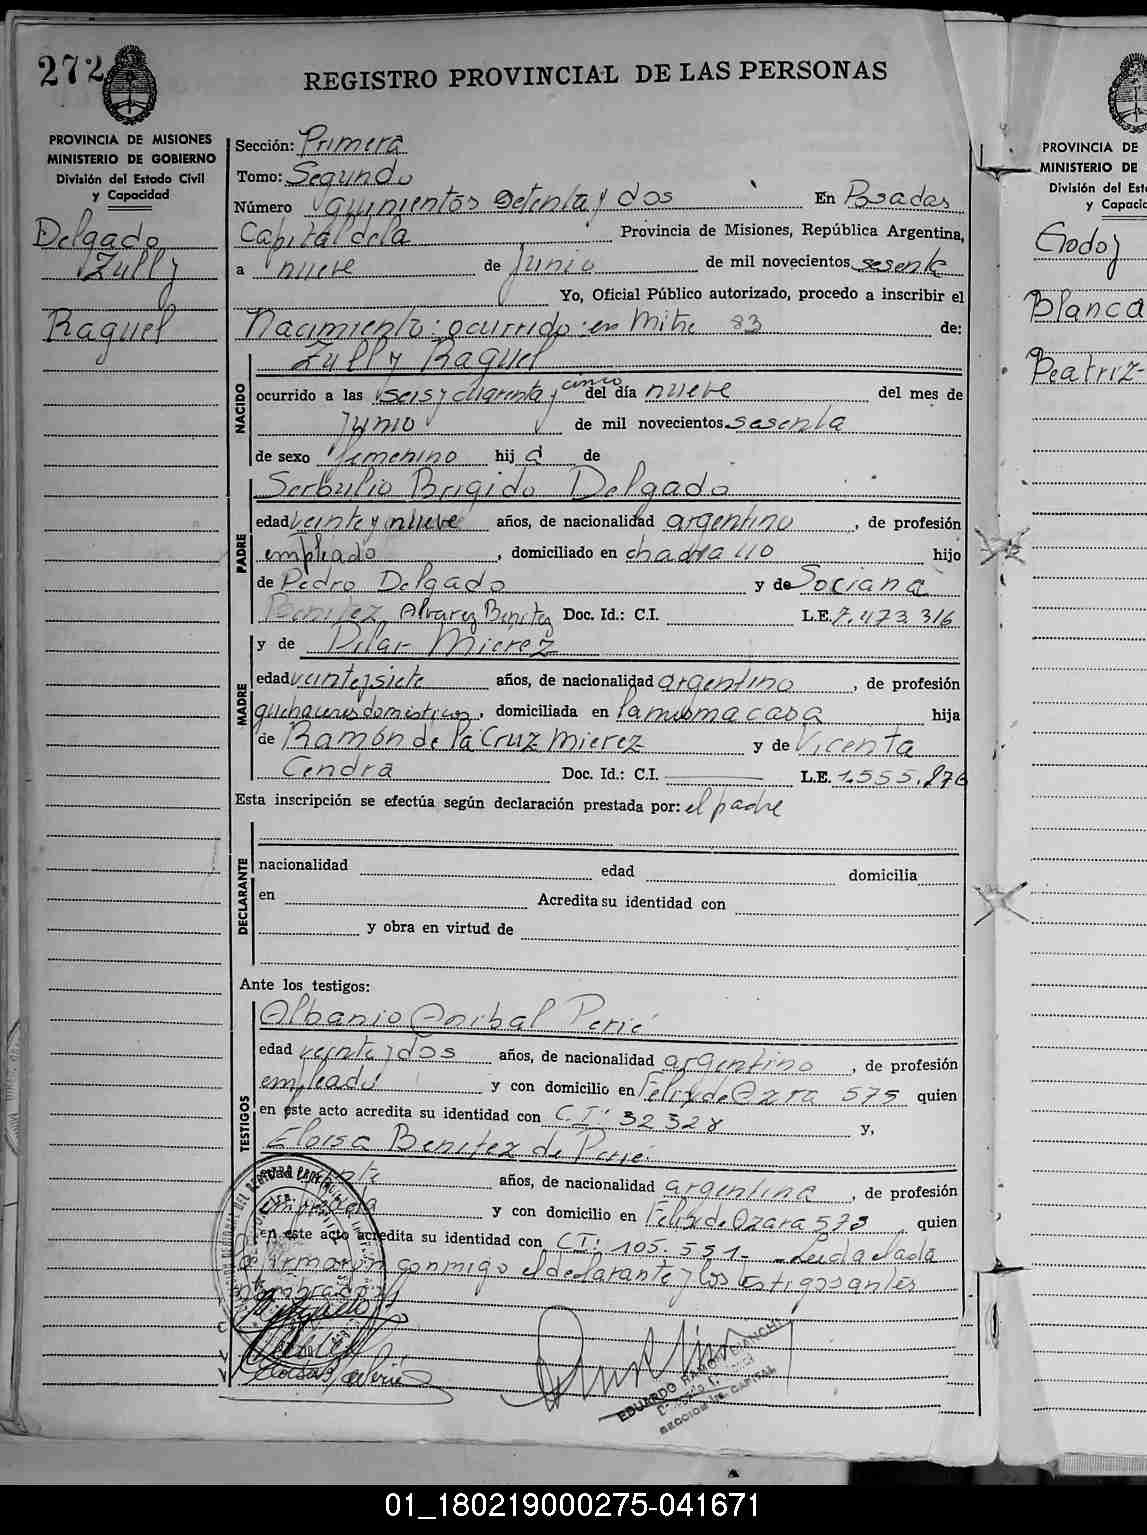 272
REGISTRO PROVINCIAL DE LAS PERSONAS
PROVINCIA DE MISIONES
MINISTERIO DE GOBIERNO
División del Estado Civil
y Capacidad
Delgado
Zully
Raquel
Sección: Primera
Tomo: Segundo
Número quinientos setenta y dos En Posadas
Capital de la Provincia de Misiones, República Argentina,
a nueve de Junio de mil novecientos sesenta
Yo, Oficial Público autorizado, procedo a inscribir el
Nacimiento: ocurrido: en Mitre 83 de:
Zully Raquel
NACIDO
ocurrido a las seis y cuarenta y cinco del día nueve del mes de
Junio de mil novecientos sesenta
de sexo femenino hij a de
Serbulio Brigido Delgado
PADRE
edad veinte y nueve años, de nacionalidad argentino, de profesión
empleado, domiciliado en chacra 110 hijo
de Pedro Delgado y de Sociana
Benitez Alvarez Benitez Doc. Id.: C.I. L.E. 7.473.316
y de Pilar Mierez
MADRE
edad veinte y siete años, de nacionalidad argentino, de profesión
quehaceres domésticos, domiciliada en la misma casa hija
de Ramón de la Cruz Mierez y de Vicenta
Cendra Doc. Id.: C.I. L.E. 1.555.876
Esta inscripción se efectúa según declaración prestada por: el padre
DECLARANTE
nacionalidad edad domicilia
en Acredita su identidad con
y obra en virtud de
Ante los testigos:
Albanio Anibal Perié
TESTIGOS
edad veinte y dos años, de nacionalidad argentino, de profesión
empleado y con domicilio en Felix de Azara 575 quien
en este acto acredita su identidad con C.I: 32328 y,
Eloisa Benitez de Perié
edad veinte años, de nacionalidad argentina, de profesión
empleada y con domicilio en Felix de Azara 575 quien
en este acto acredita su identidad con C.I: 105.551- Leida el acta
firmaron conmigo el declarante y los testigos antes
nombrados
EDUARDO RAMON BIANCHI
SECCION 1a. CAPITAL
PROVINCIA DE
MINISTERIO DE
División del Est
y Capacid
Godoy
Blanca
Beatriz-
01_180219000275-041671